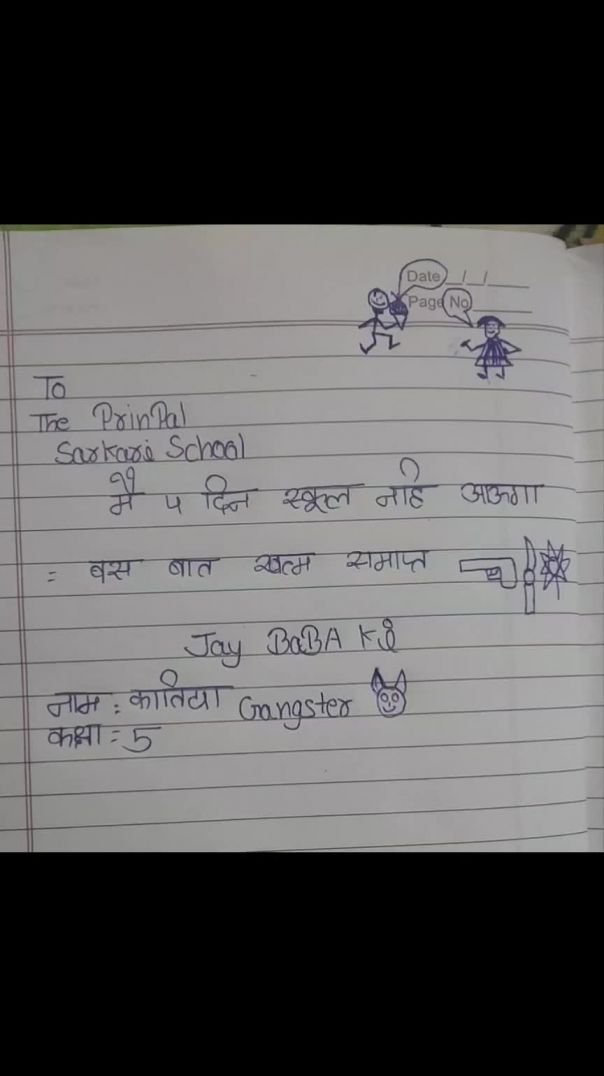 Date / /
Page No
To
The PrinPal
Sarkari School
मैं ५ दिन स्कूल नहि आऊगा
= बस बात खत्म समाप्त
Jay BaBA Ki
नाम : कातिया Gangster
कक्षा = 5